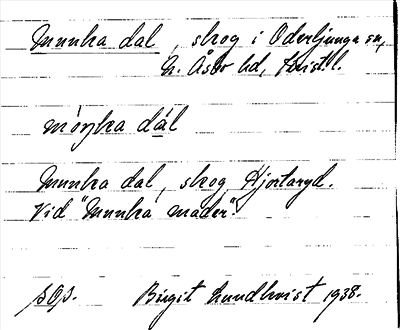 Munka dal, skog i Oderljunga sn,
N. Åsbo hd, Krist. l.
móŋka dál
Munka dal, skog, Hjortaryd.
Vid "Munka mader".
sOp. Birgit Lundkvist 1938.